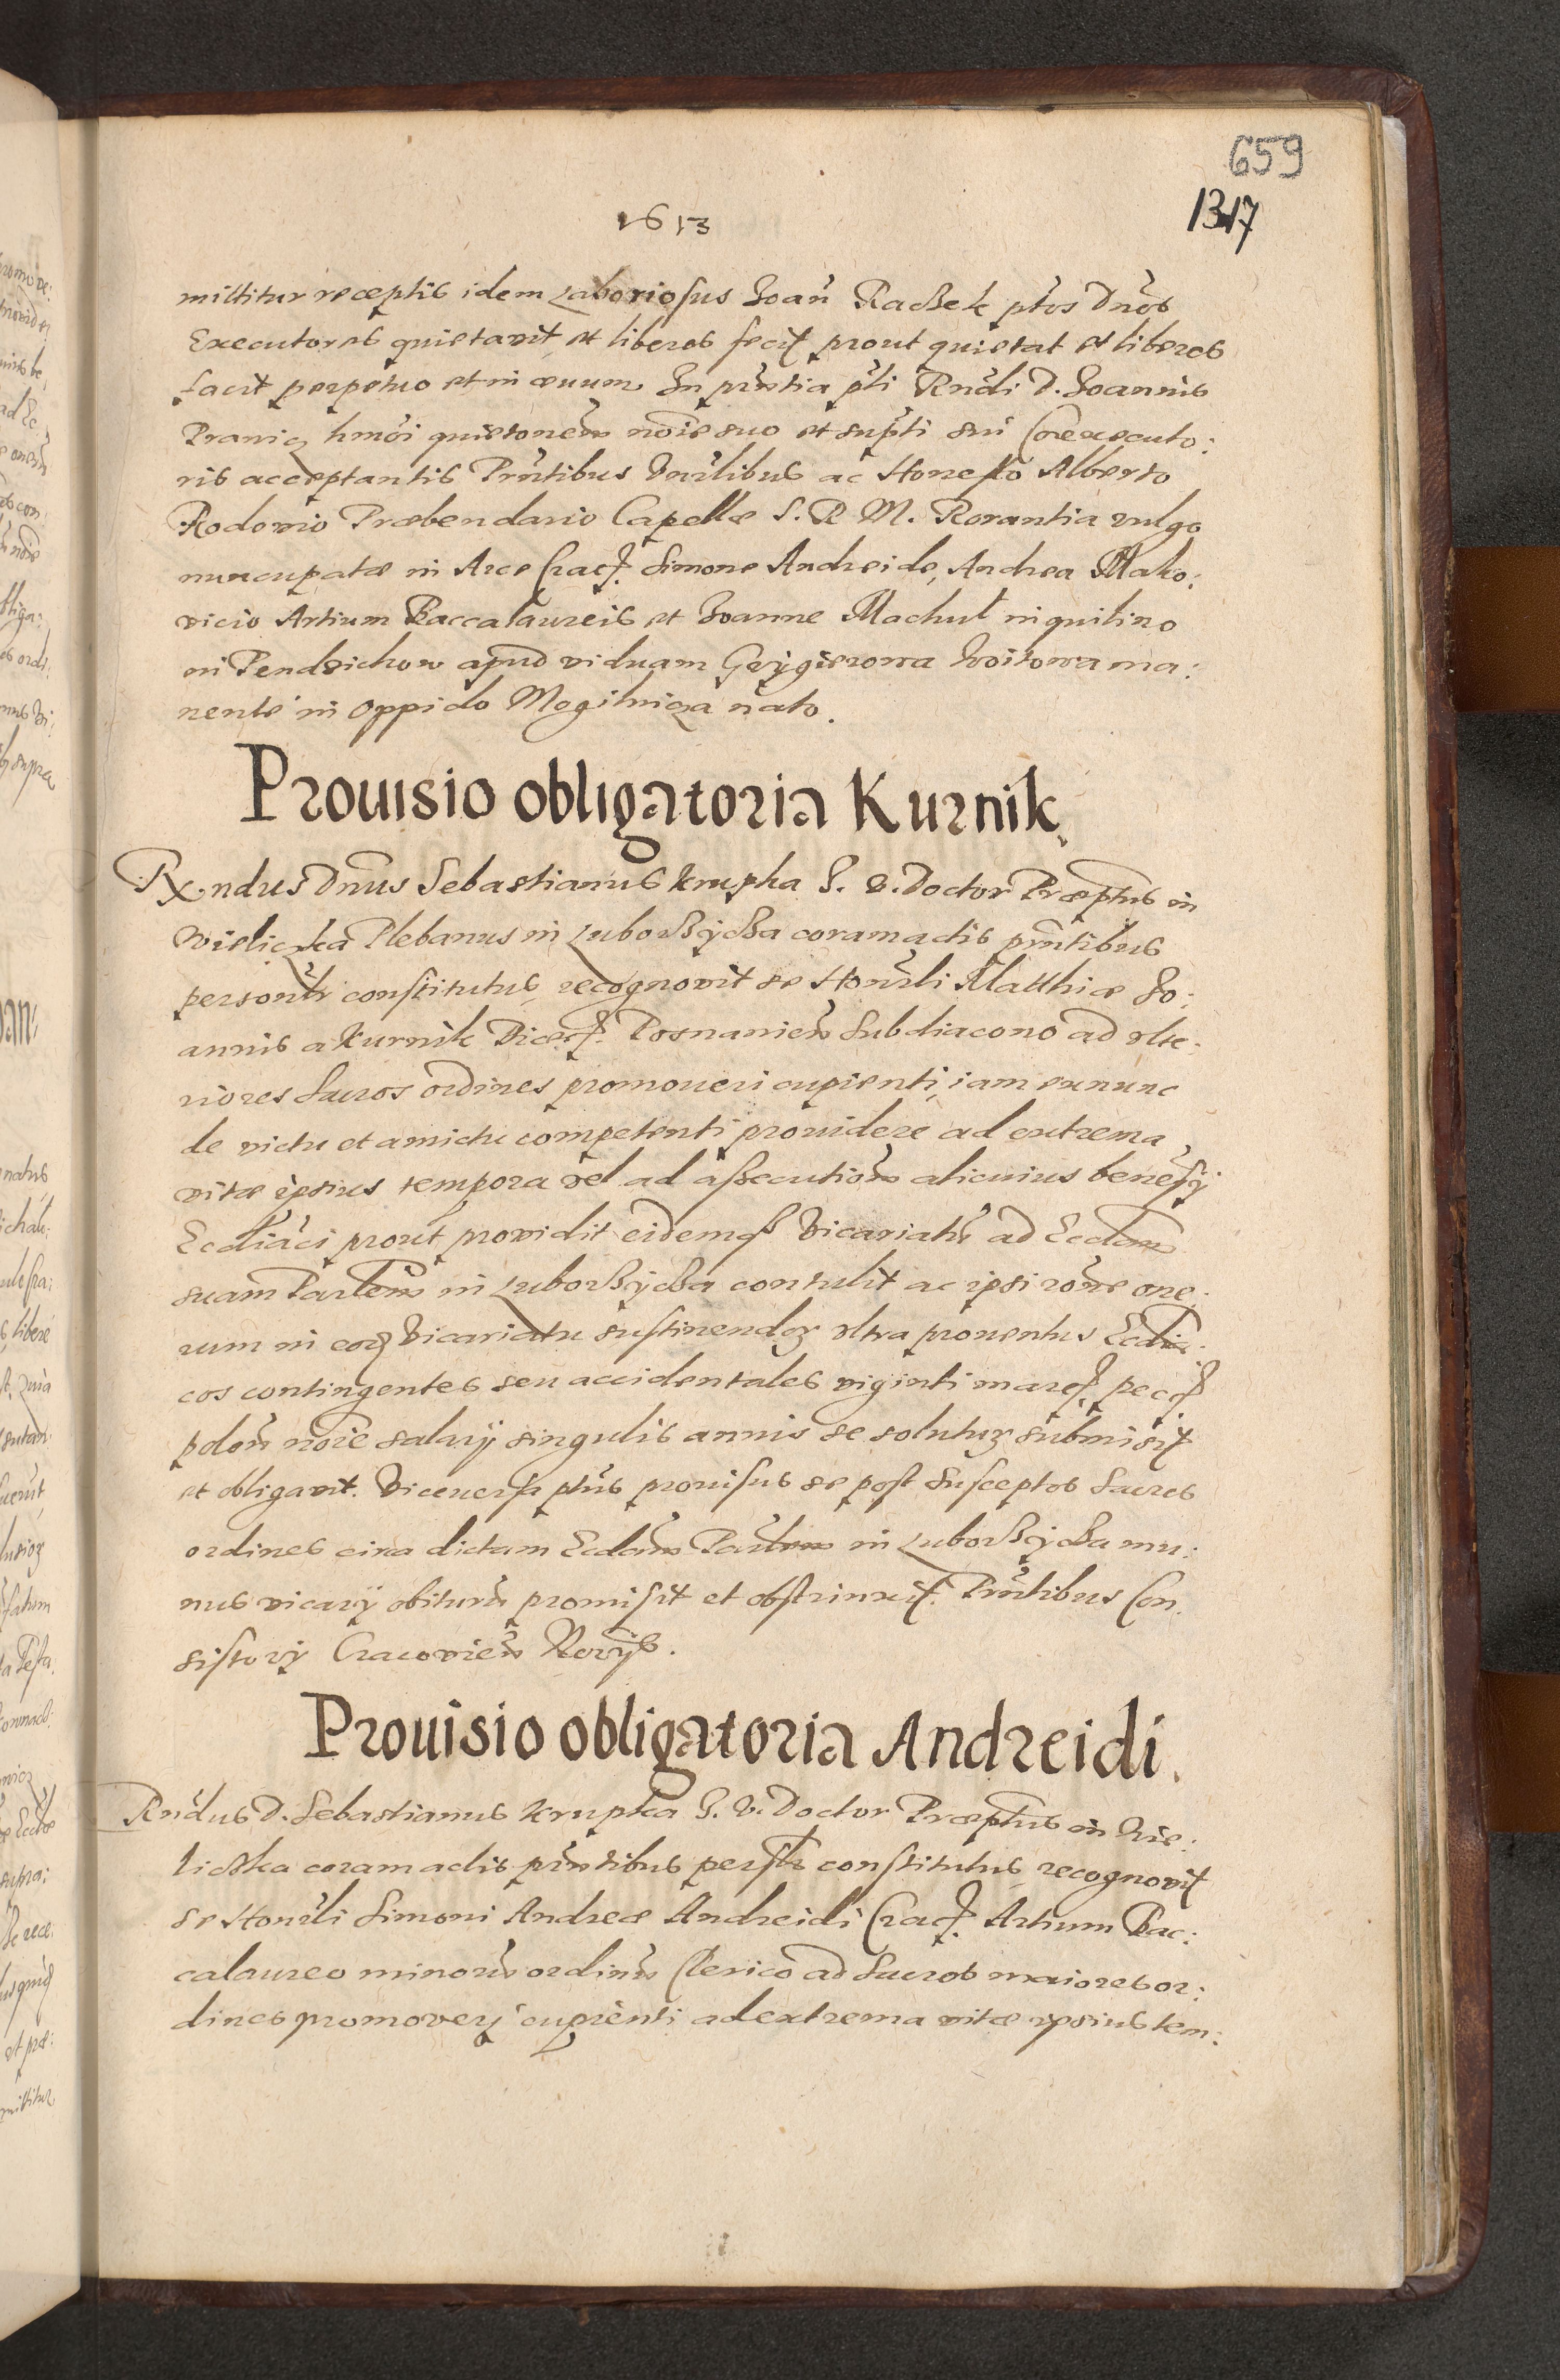 659
1317
1613
mittitur receptis idem Laboriosus Joan̄ Raczek ptōs Dnōs
Executores quietavit et liberos fecit prout quietat et liberos
facit perpetuo et in ævum. In pr̄ntia p̄ti Rn̄di D. Joannis
hmōi quietōnem noīe suo et sup̄ti sui Coexecuto:
ris acceptantis Pr̄ntibus ac Honesto Alberto
Rodovio Præbendario Capellæ S. R. M. Rorantia vulgo
nuncupatæ in Arce Crac. Simone Andreide, Andrea Mako:
vicio Artium Baccalaureis et Joanne Machul inquilino
in Pendzichow apud viduam Grÿgierowa Woitowa ma:
nente in oppido Mogilnicza nato.
Prouisio obligatoria Kurnik
Rndus Dn̄us Sebastianus Krupka J. V. Doctor Præptus in
Vieliczka Plebanus in Luborzÿcza coram actis prn̄tibus
personlr constitutus, recognovit se Honorli Matthiæ Jo:
annis a Kurnik Dioec. Posnanien̄ Subdiacono ad ulte:
riores Sacros ordines promoueri cupienti, iam ex nunc
de victu et amictu competenti prouidere ad extrema
vitæ ipsius tempora vel ad assecutionem alicuius benefÿ
Ecclīaci prout providit eidemq Vicariatū ad Eccliam
suam Parlem in Luborzÿcza contulit ac ipsi rōne one:
rum in eod Vicariatu sustinendoꝝ ultra prouentus Ecclia:
cos contingentes seu accidentales viginti marc. pec.
polon̄ noīe salarÿ singulis annis se soluturꝝ submisit
et obligavit. Viceuersa ptūs prouisus se post susceptos Sacros
ordines circa dictam Eccliam Parlem in Luborzÿcza mu:
nus vicarÿ obiturū promisit et obstrinxit. Prn̄tibus Con:
sistorÿ Cracovien̄ Norÿs.
Prouisio obligatoria Andreidi.
Rn̄dus D. Sebastianus Krupka J. V. Doctor Præptus in Vie:
liczka coram actis prn̄tibus perslr constitutus, recognovit
se Honorli Simoni Andreæ Andreidi Crac. Artium Bac:
calaureo minorū ordinū Clerico ad Sacros maiores or:
dines promoverÿ cupienti ad extrema vitæ ipsius tem: